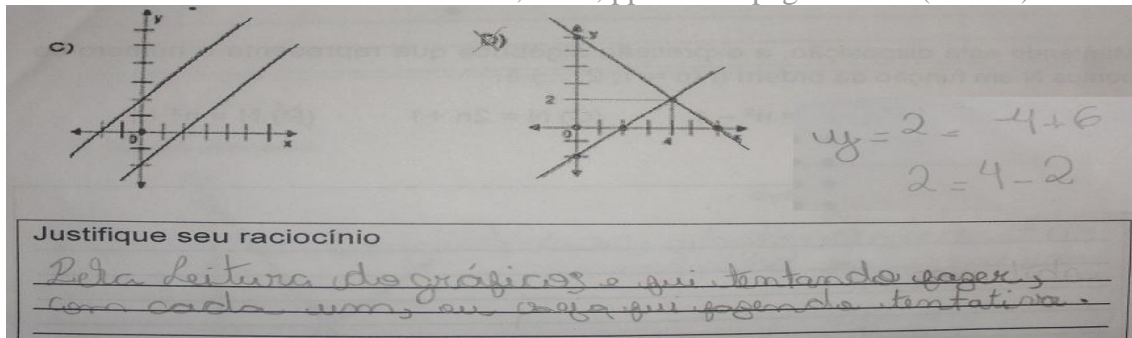 C)
y
0
x
D)
y
2
0
4
x
y = 2 = -4+6
2 = 4-2
Justifique seu raciocínio
Pela Leitura do gráficos e fui tentando fazer,
com cada um, ou fui fazendo tentativa.